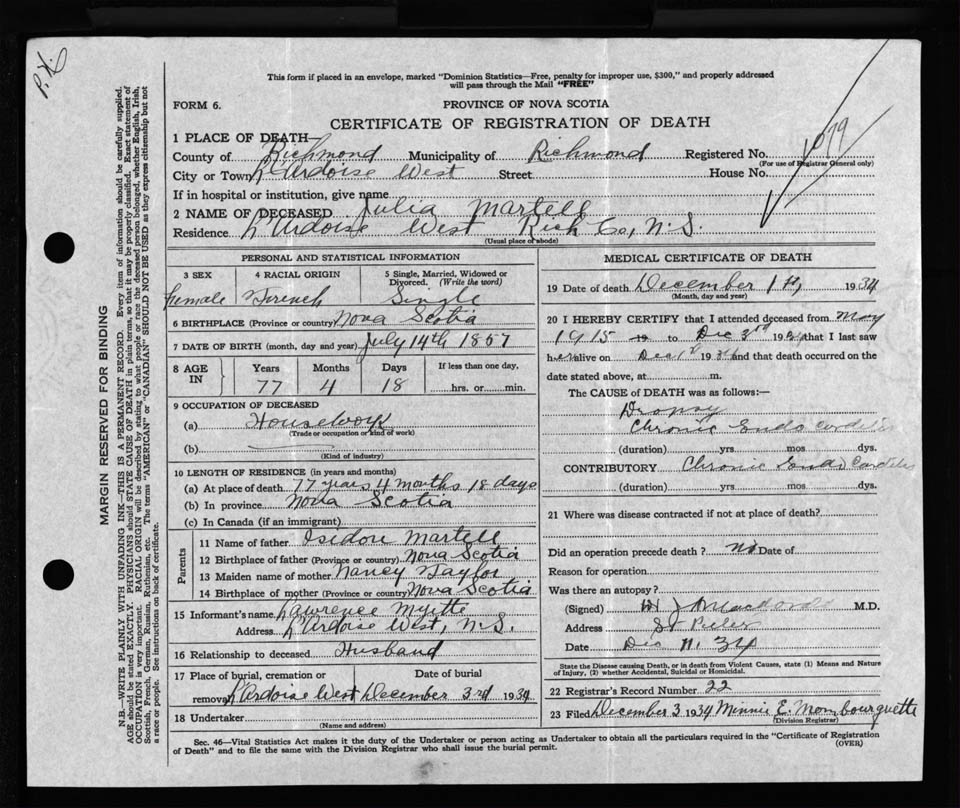 P.X.
This form if placed in an envelope, marked "Dominion Statistics—Free, penalty for improper use, $300," and properly addressed
will pass through the Mail "FREE"
FORM 6.
PROVINCE OF NOVA SCOTIA
CERTIFICATE OF REGISTRATION OF DEATH
1 PLACE OF DEATH—
County of Richmond Municipality of Richmond Registered No.
(For use of Registrar General only)
City or Town L'Ardoise West Street House No.
If in hospital or institution, give name
2 NAME OF DECEASED Julia Martell
Residence L'Ardoise West Rich Co, N.S.
(Usual place of abode)
PERSONAL AND STATISTICAL INFORMATION
3 SEX 4 RACIAL ORIGIN 5 Single, Married, Widowed or
Divorced. (Write the word)
female French Single
6 BIRTHPLACE (Province or country) Nova Scotia
7 DATE OF BIRTH (month, day and year) July 14th 1857
8 AGE IN Years Months Days If less than one day,
77 4 18 hrs. or min.
9 OCCUPATION OF DECEASED
(a) Housework
(Trade or occupation or kind of work)
(b)
(Kind of industry)
10 LENGTH OF RESIDENCE (in years and months)
(a) At place of death 77 years 4 months 18 days
(b) In province Nova Scotia
(c) In Canada (if an immigrant)
Parents
11 Name of father Isidore Martell
12 Birthplace of father (Province or country) Nova Scotia
13 Maiden name of mother Nancy Taylor
14 Birthplace of mother (Province or country) Nova Scotia
15 Informant's name Lawrence Myette
Address L'Ardoise West, N.S.
16 Relationship to deceased Husband
17 Place of burial, cremation or Date of burial
removal L'Ardoise West December 3rd 1934
18 Undertaker
(Name and address)
MEDICAL CERTIFICATE OF DEATH
19 Date of death December 1st, 1934
(Month, day and year)
20 I HEREBY CERTIFY that I attended deceased from May
1915 to Dec 3rd 1934 that I last saw
her alive on Dec 1st 1934 and that death occurred on the
date stated above, at m.
The CAUSE of DEATH was as follows:—
Dropsy
Chronic Endo Carditis
(duration) yrs. mos. dys.
CONTRIBUTORY Chronic Endo Carditis
(duration) yrs. mos. dys.
21 Where was disease contracted if not at place of death?
Did an operation precede death? No Date of
Reason for operation
Was there an autopsy?
(Signed) M.D.
Address St Peters
Date Dec 34
State the Disease causing Death, or in death from Violent Causes, state (1) Means and Nature
of Injury, (2) whether Accidental, Suicidal or Homicidal.
22 Registrar's Record Number 22
23 Filed December 3 1934 Minnie E. Mombourquette
(Division Registrar)
Sec. 46—Vital Statistics Act makes it the duty of the Undertaker or person acting as Undertaker to obtain all the particulars required in the "Certificate of Registration
of Death" and to file the same with the Division Registrar who shall issue the burial permit.
(OVER)
MARGIN RESERVED FOR BINDING
N.B.—WRITE PLAINLY WITH UNFADING INK—THIS IS A PERMANENT RECORD. Every item of information should be carefully supplied.
AGE should be stated EXACTLY. PHYSICIANS should STATE CAUSE OF DEATH in plain terms, so that it may be properly classified. Exact statement of
OCCUPATION is very important. RACIAL ORIGIN will be described by stating to what people or race the deceased person belonged, whether English, Irish,
Scottish, French, German, Russian, Ruthenian, etc. The terms "AMERICAN" or "CANADIAN" SHOULD NOT BE USED as they express citizenship but not
a race or people. See instructions on back of certificate.